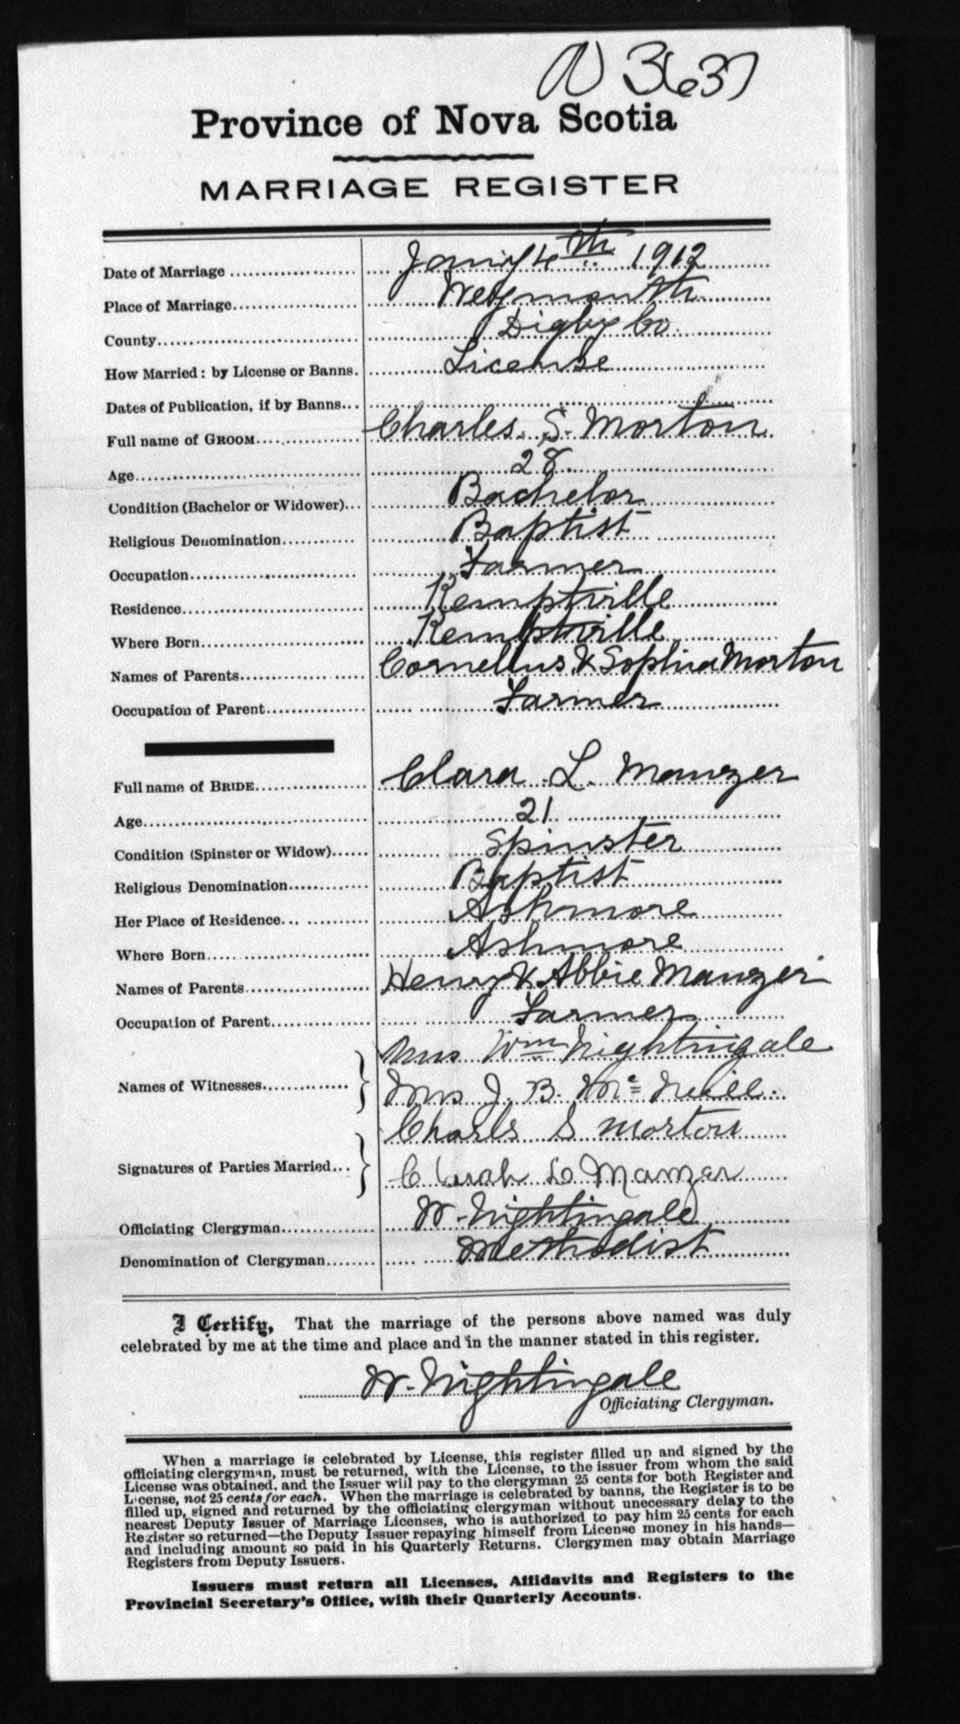 N 3637
Province of Nova Scotia
MARRIAGE REGISTER
Date of Marriage Jany 4th 1912
Place of Marriage Weymouth
County Digby Co.
How Married: by License or Banns. License
Dates of Publication, if by Banns
Full name of GROOM Charles. S. Morton
Age 28.
Condition (Bachelor or Widower) Bachelor
Religious Denomination Baptist
Occupation Farmer
Residence Kemptville
Where Born Kemptville
Names of Parents Cornelius & Sophia Morton
Occupation of Parent Farmer
Full name of BRIDE Clara L. Manzer
Age 21
Condition (Spinster or Widow) Spinster
Religious Denomination Baptist
Her Place of Residence Ashmore
Where Born Ashmore
Names of Parents Henry & Abbie Manzer
Occupation of Parent Farmer
Names of Witnesses Mrs Wm Nightingale
Mrs J. B. Mc Neill.
Signatures of Parties Married Charls S Morton
L Manzer
Officiating Clergyman W. Nightingale
Denomination of Clergyman Methodist
I Certify, That the marriage of the persons above named was duly
celebrated by me at the time and place and in the manner stated in this register.
W. Nightingale
Officiating Clergyman.
When a marriage is celebrated by License, this register filled up and signed by the
officiating clergyman, must be returned, with the License, to the issuer from whom the said
License was obtained, and the Issuer will pay to the clergyman 25 cents for both Register and
License, not 25 cents for each. When the marriage is celebrated by banns, the Register is to be
filled up, signed and returned by the officiating clergyman without unecessary delay to the
nearest Deputy Issuer of Marriage Licenses, who is authorized to pay him 25 cents for each
Register so returned—the Deputy Issuer repaying himself from License money in his hands—
and including amount so paid in his Quarterly Returns. Clergymen may obtain Marriage
Registers from Deputy Issuers.
Issuers must return all Licenses, Affidavits and Registers to the
Provincial Secretary's Office, with their Quarterly Accounts.